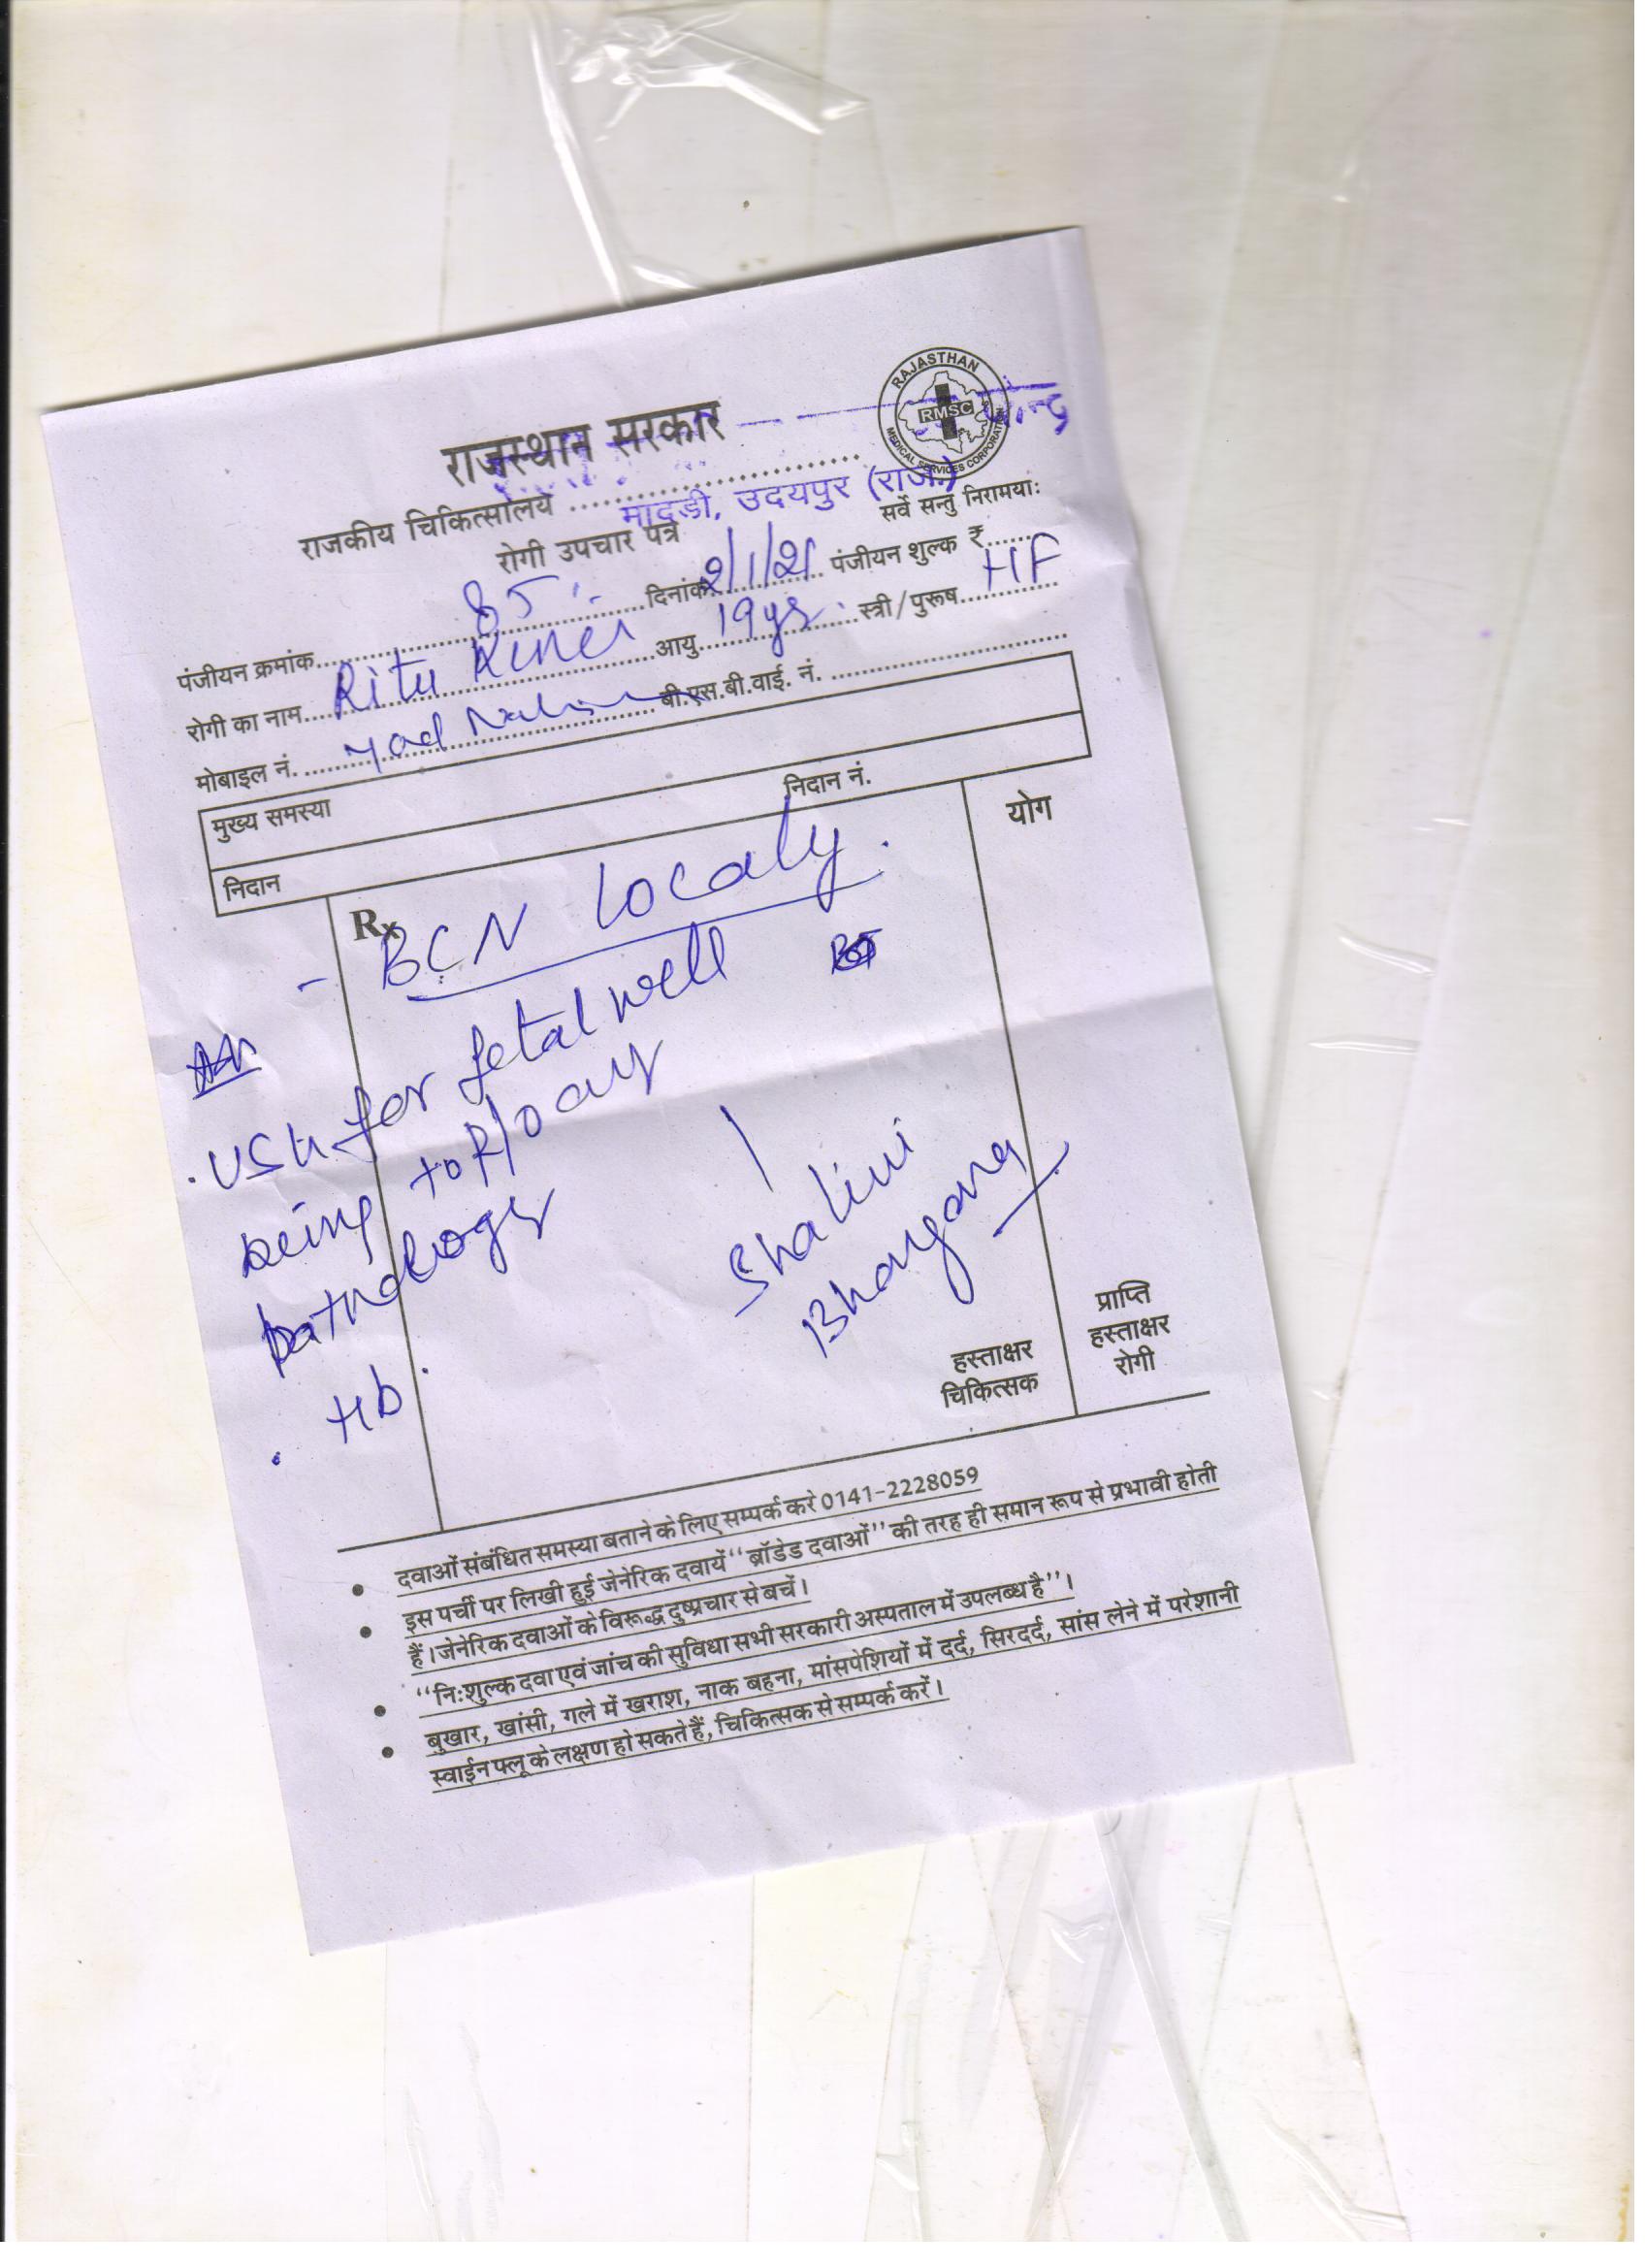 राजस्थान सरकार
RAJASTHAN
RMSC
MEDICAL SERVICES CORPORATION
राजकीय चिकित्सालय ..............................
मादडी, उदयपुर (राज.)
सर्वे सन्तु निरामयाः
रोगी उपचार पत्र
पंजीयन क्रमांक 85 दिनांक 2/1/21 पंजीयन शुल्क ₹
रोगी का नाम Ritu आयु 19yrs स्त्री/पुरूष HF
मोबाइल नं. बी.एस.बी.वाई. नं.
मुख्य समस्या
निदान निदान नं.
Rx योग
- BCN Localy.
. USG for fetal well
being to R/o any
pathology
. Hb.
Shalini
Bhargava
हस्ताक्षर
चिकित्सक
प्राप्ति
हस्ताक्षर
रोगी
• दवाओं संबंधित समस्या बताने के लिए सम्पर्क करे 0141-2228059
• इस पर्ची पर लिखी हुई जेनेरिक दवायें "ब्रॉडेड दवाओं" की तरह ही समान रूप से प्रभावी होती
हैं। जेनेरिक दवाओं के विरूद्ध दुष्प्रचार से बचें।
• "निःशुल्क दवा एवं जांच की सुविधा सभी सरकारी अस्पताल में उपलब्ध है"।
• बुखार, खांसी, गले में खराश, नाक बहना, मांसपेशियों में दर्द, सिरदर्द, सांस लेने में परेशानी
स्वाईन फ्लू के लक्षण हो सकते हैं, चिकित्सक से सम्पर्क करें।